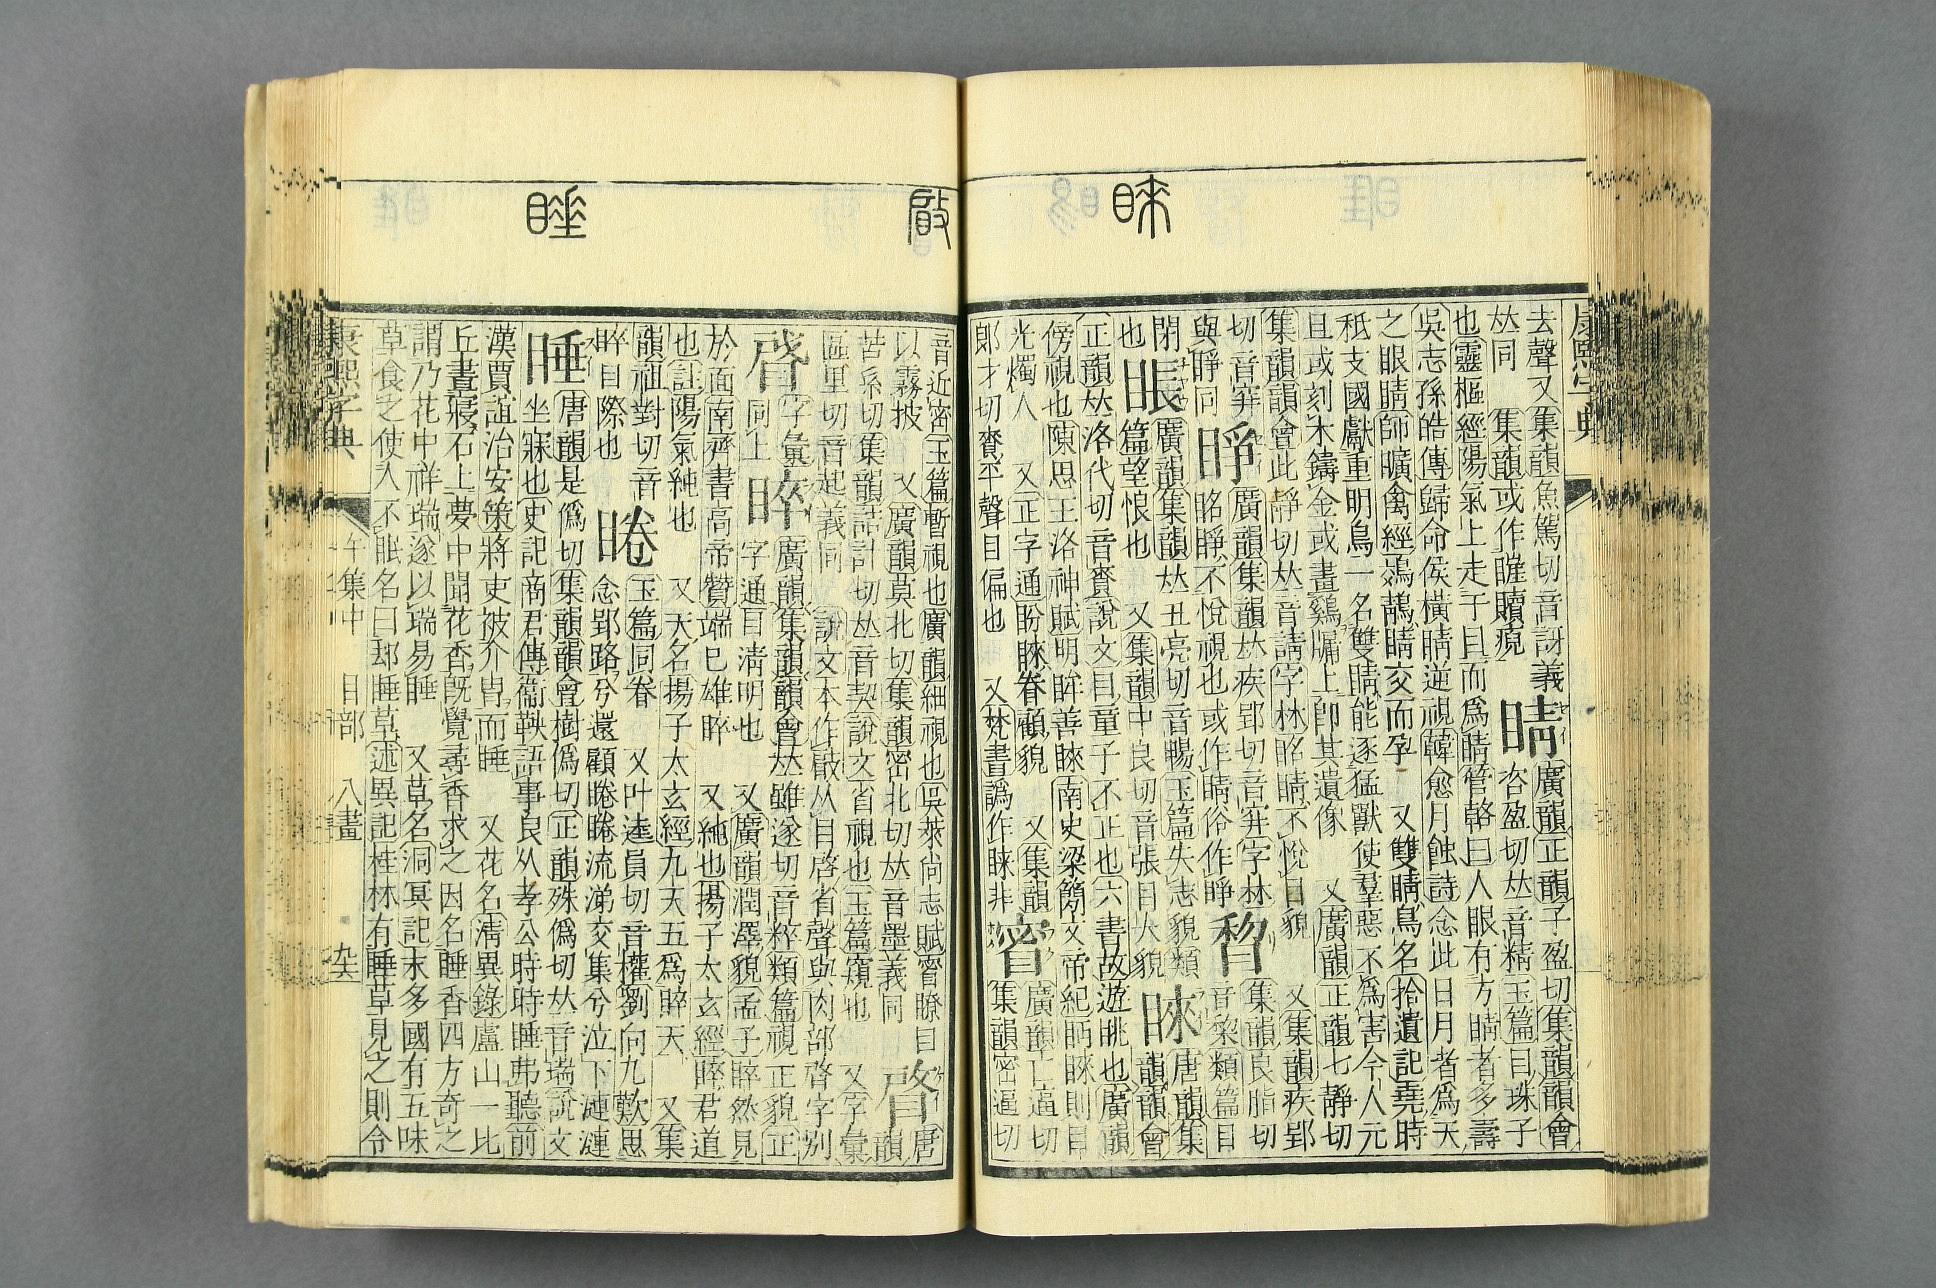 睞
康熙字典
去聲又集韻魚駕切音訝義
𠀤同 集韻或作睚矔𥈐 睛 廣韻正韻子盈切集韻韻會
咨盈切𠀤音精玉篇目珠子
也靈樞經陽氣上走于目而爲睛管輅曰人眼有方睛者多壽
吳志孫皓傳歸命侯橫睛逆視韓愈月蝕詩念此日月者爲天
之眼睛師曠禽經鵁鶄睛交而孕 又雙睛鳥名拾遺記堯時
秪支國獻重明鳥一名雙睛能逐猛獸使羣惡不爲害今人元
旦或刻木鑄金或畫鷄牖上卽其遺像 又廣韻正韻七靜切
集韻韻會此靜切𠀤音請字林䀴睛不悅目貌 又集韻疾郢
切音穽 睜 廣韻集韻𠀤疾郢切音穽字林
䀴睜不悅視也或作睛俗作睜 䁟 集韻良脂切
音棃類篇目
閉 䀶 廣韻集韻𠀤丑亮切音暢玉篇失志貌類
篇望恨也 又集韻中良切音張目大貌 睞 唐韻集
韻韻會
正韻𠀤洛代切音賚說文目童子不正也六書故遊眺也廣韻
傍視也陳思王洛神賦明眸善睞南史梁簡文帝紀眄睞則目
光燭人 又正字通盼睞眷顧貌 又集韻
郎才切賚平聲目偏也 又梵書譌作睞非 䁇 廣韻亡逼切
集韻密逼切
睡
音近密玉篇暫視也廣韻細視也吳萊尚志賦䁇瞭目
以霧披 又廣韻莫北切集韻密北切𠀤音墨義同 䁈 唐
韻
苦系切集韻詰計切𠀤音契說文省視也玉篇窺也 又字彙
區里切音起義同 說文本作䁈从目啓省聲與肉部䏿字別
字彙
同上 睟 廣韻集韻韻會𠀤雖遂切音粹類篇視正貌正
字通目淸明也 又廣韻潤澤貌孟子睟然見
於面南齊書高帝贊端已雄睟 又純也揚子太玄經睟君道
也註陽氣純也 又天名揚子太玄經九天五爲睟天 又集
韻祖對切音
晬目際也 睠 玉篇同眷 又叶逵員切音權劉向九歎思
念郢路兮還顧睠睠流涕交集兮泣下漣漣
睡 唐韻是僞切集韻韻會樹僞切正韻殊僞切𠀤音瑞說文
坐寐也史記商君傳衞鞅語事良久孝公時時睡弗聽前
漢賈誼治安策將吏被介胄而睡 又花名淸異錄廬山一比
丘晝寢石上夢中聞花香旣覺尋香求之因名睡香四方奇之
謂乃花中祥瑞遂以瑞易睡 又草名洞冥記末多國有五味
草食之使人不眠名曰却睡草述異記桂林有睡草見之則令
康熙字典 午集中 目部 八畫